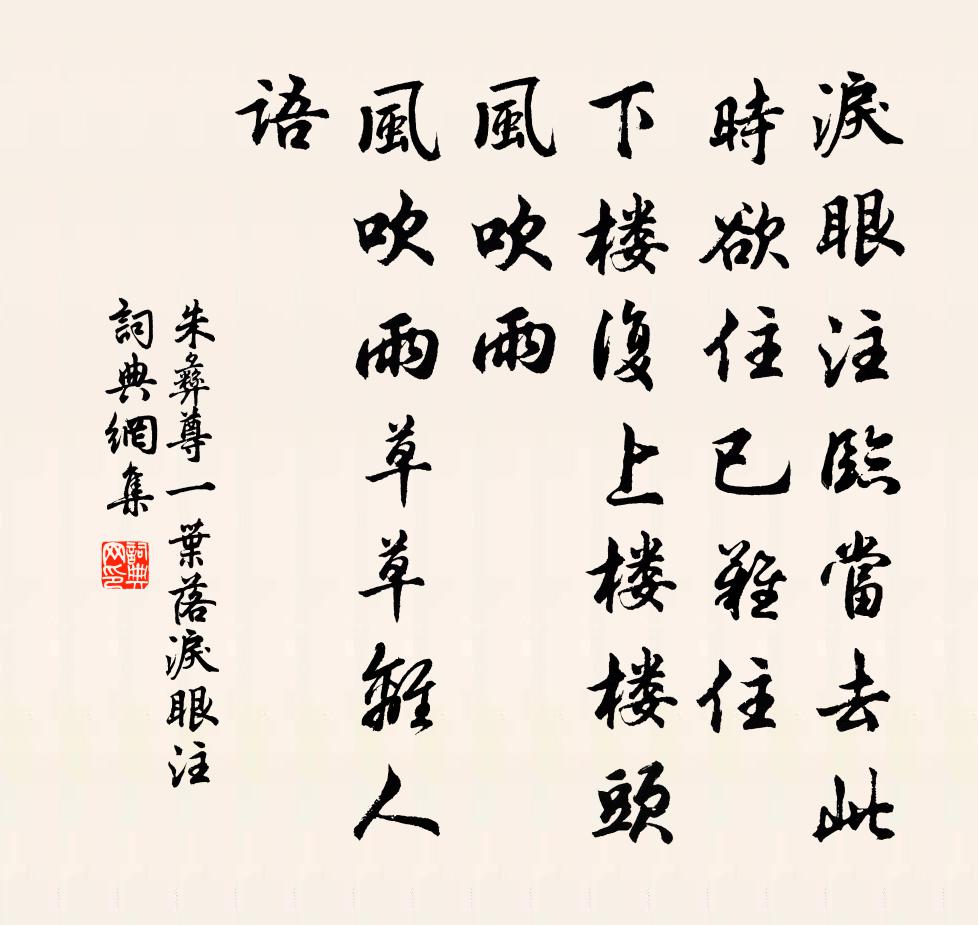 淚眼注臨當去此
時欲住已難住
下楼復上楼楼頭
風吹雨
風吹雨草草離人
语
朱彝尊一葉落淚眼注
詞典網集
詞典网印